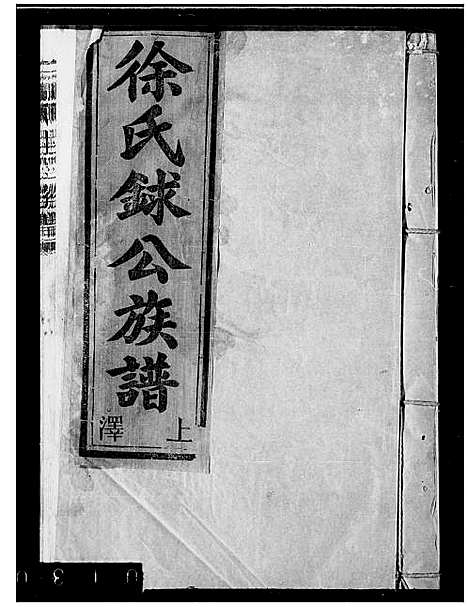 徐氏銶公族譜
上澤